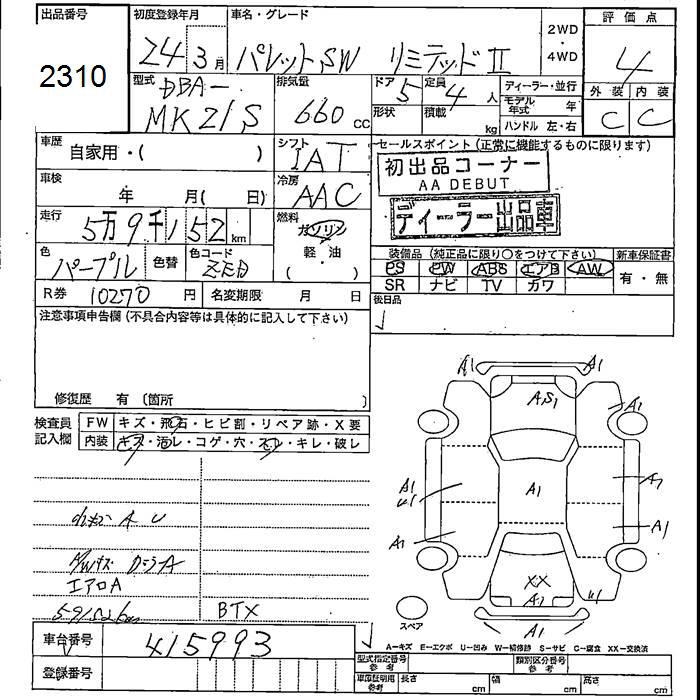 出品番号
2310
初度登録年月
24 3月
車名・グレード
パレットSW リミテッドⅡ
2WD
・
4WD
評価点
4
外装 内装
C C
型式
DBA-
MK21S
排気量
660 cc
ドア 5
定員 4 人
形状
積載 kg
ディーラー・並行
モデル年式 年
ハンドル 左・右
車歴
自家用・( )
シフト
IAT
セールスポイント (正常に機能するものに限ります)
初出品コーナー
AA DEBUT
ディーラー出品車
車検
年 月( 日)
冷房
AAC
走行
5万9千152km
燃料
ガソリン
軽・油
( )
色
パープル
色替
色コード
ZED
装備品 (純正品に限り○をつけて下さい)
PS PW ABS エアB AW
SR ナビ TV カワ
新車保証書
有・無
R券 10270 円
名変期限 月 日
後日品
注意事項申告欄 (不具合内容等は具体的に記入して下さい)
修復歴 有 〔箇所 〕
検査員記入欄
FW キズ・飛石・ヒビ割・リペア跡・X要
内装 キズ・汚レ・コゲ・穴・スレ・キレ・破レ
A U
A/Wキズ
エアロA
BTX
A1 A1
AS1
A1
A1
U1
A1
A1
A1
A1
XX
A1
U1
A1
スペア
A=キズ E=エクボ U=凹み W=補修跡 S=サビ C=腐食 XX=交換済
車台番号 415993
登録番号
型式指定番号
参考
類別区分番号
参考
車庫証明用
参考
長さ cm
幅 cm
高さ cm